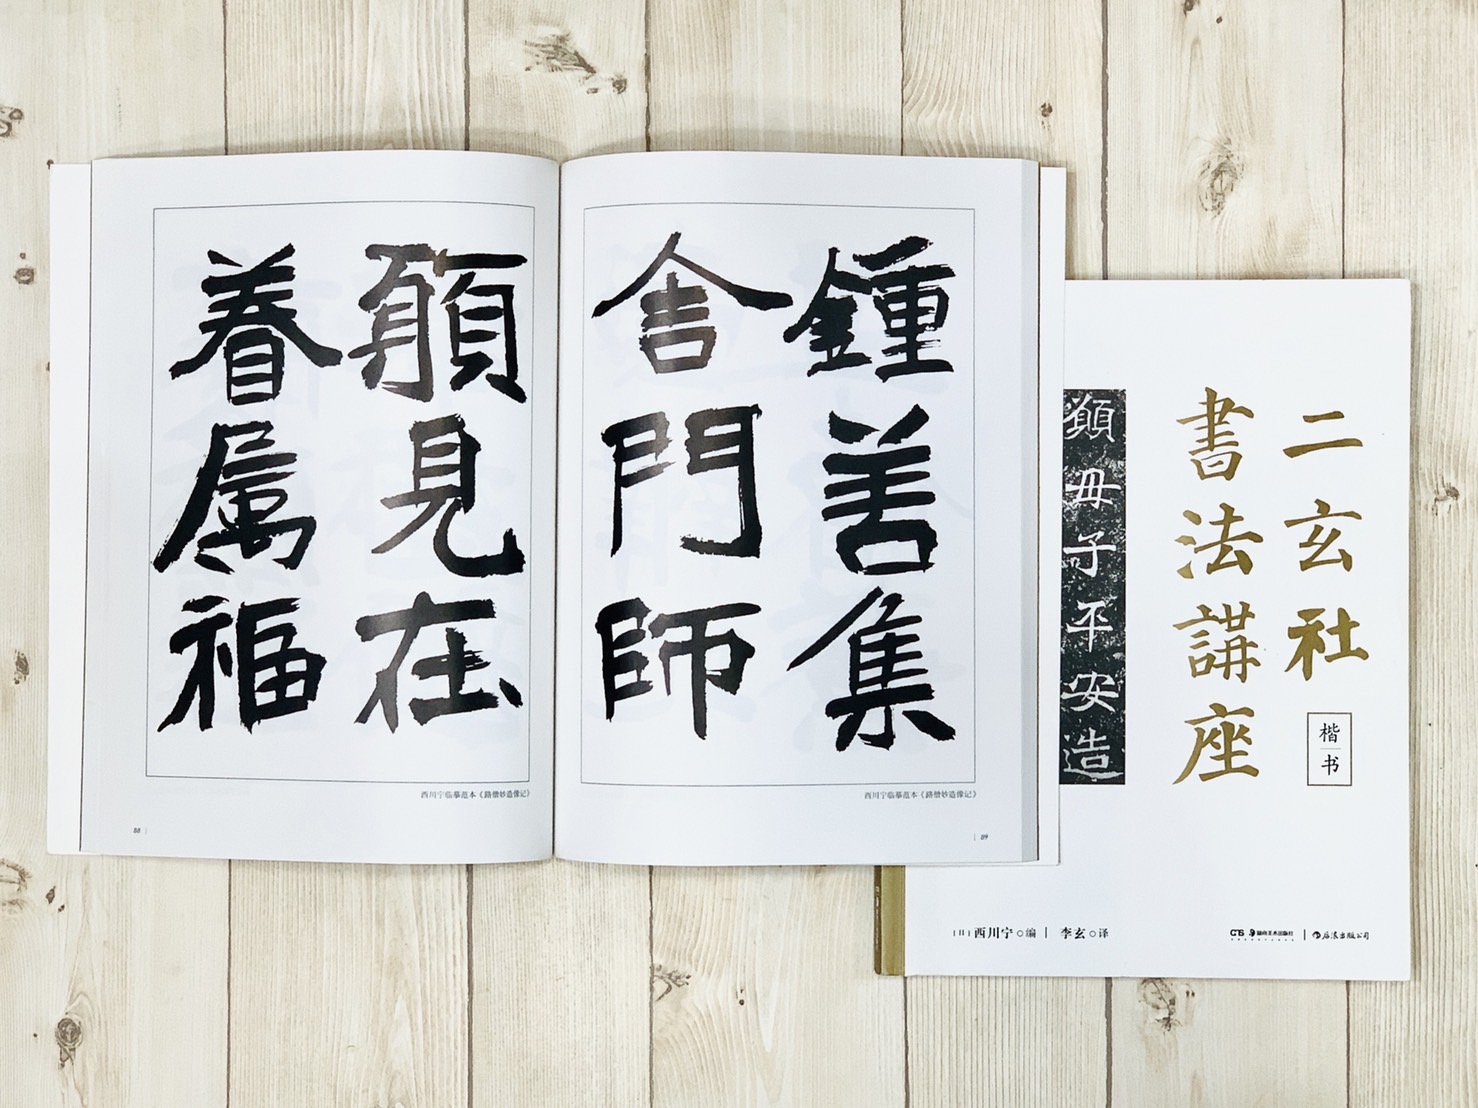 鍾善集
舍門師
願見在
眷属福
西川宁临摹范本《路僧妙造像记》
西川宁临摹范本《路僧妙造像记》
88
89
二玄社
書法講座
楷书
願母子平安造
[日]西川宁○编 | 李玄○译
湖南美术出版社
后浪出版公司